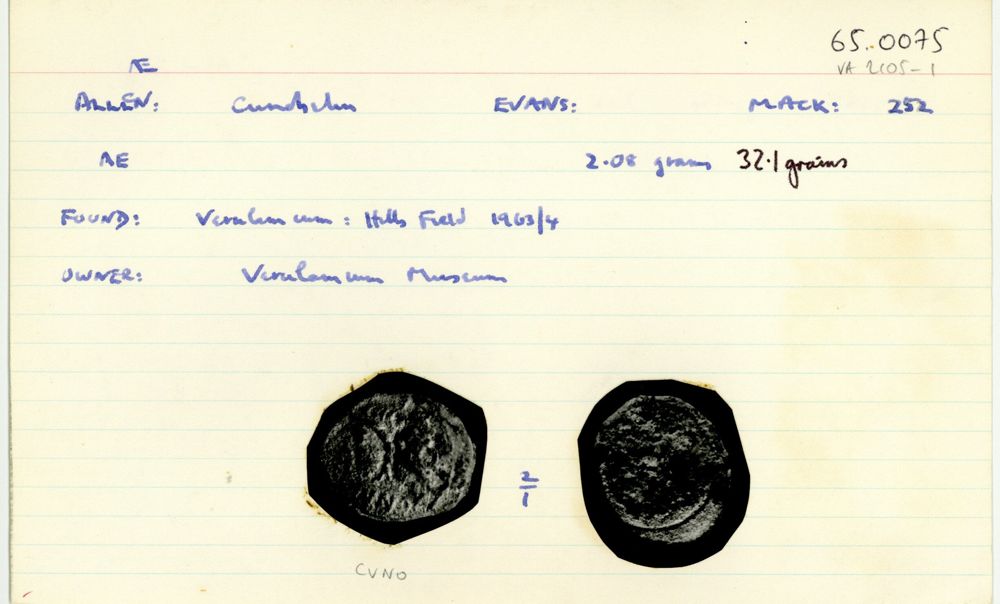 65.0075
VA 2105-1
Æ
ALLEN: Cunobelin EVANS: MACK: 252
AE 2.08 grams 32.1 grains
FOUND: Verulamium: Hills Field 1963/4
OWNER: Verulamium Museum
2/1
CVNO